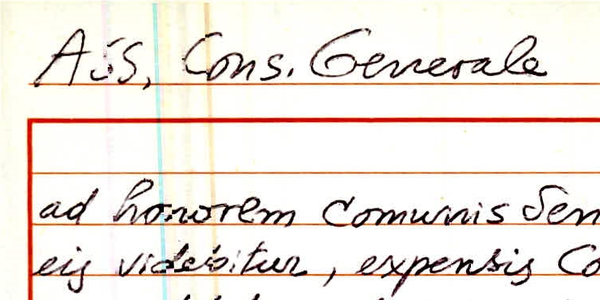 Ass, Cons. Generale
ad honorem Comunis Sen
eis videbitur, expensis Co